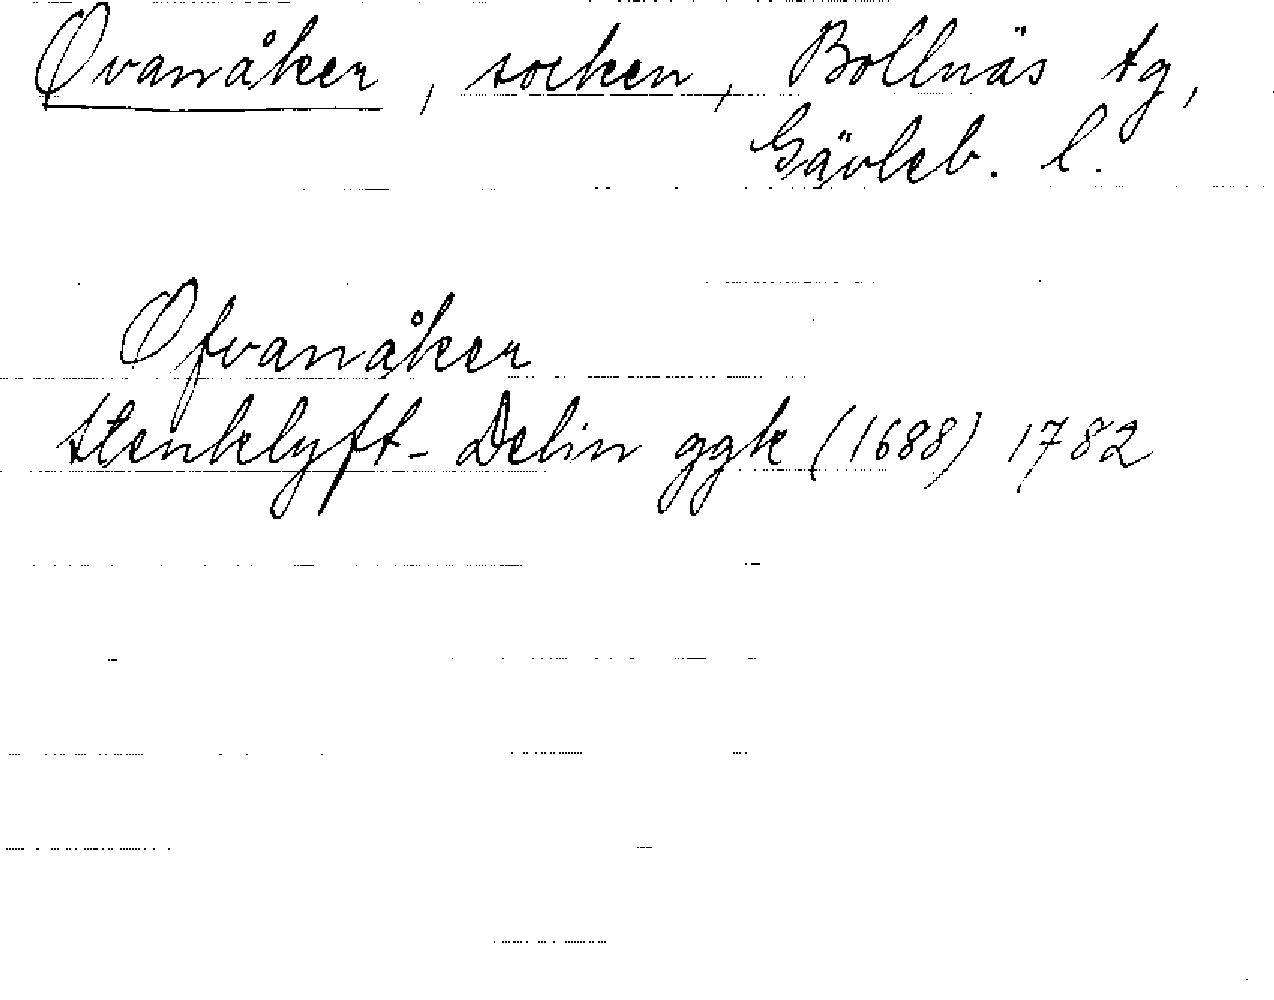 Ovanåker, socken, Bollnäs tg,
Gävleb. l.
Ofvanåker
Stenklyft-Delin ggk (1688) 1782